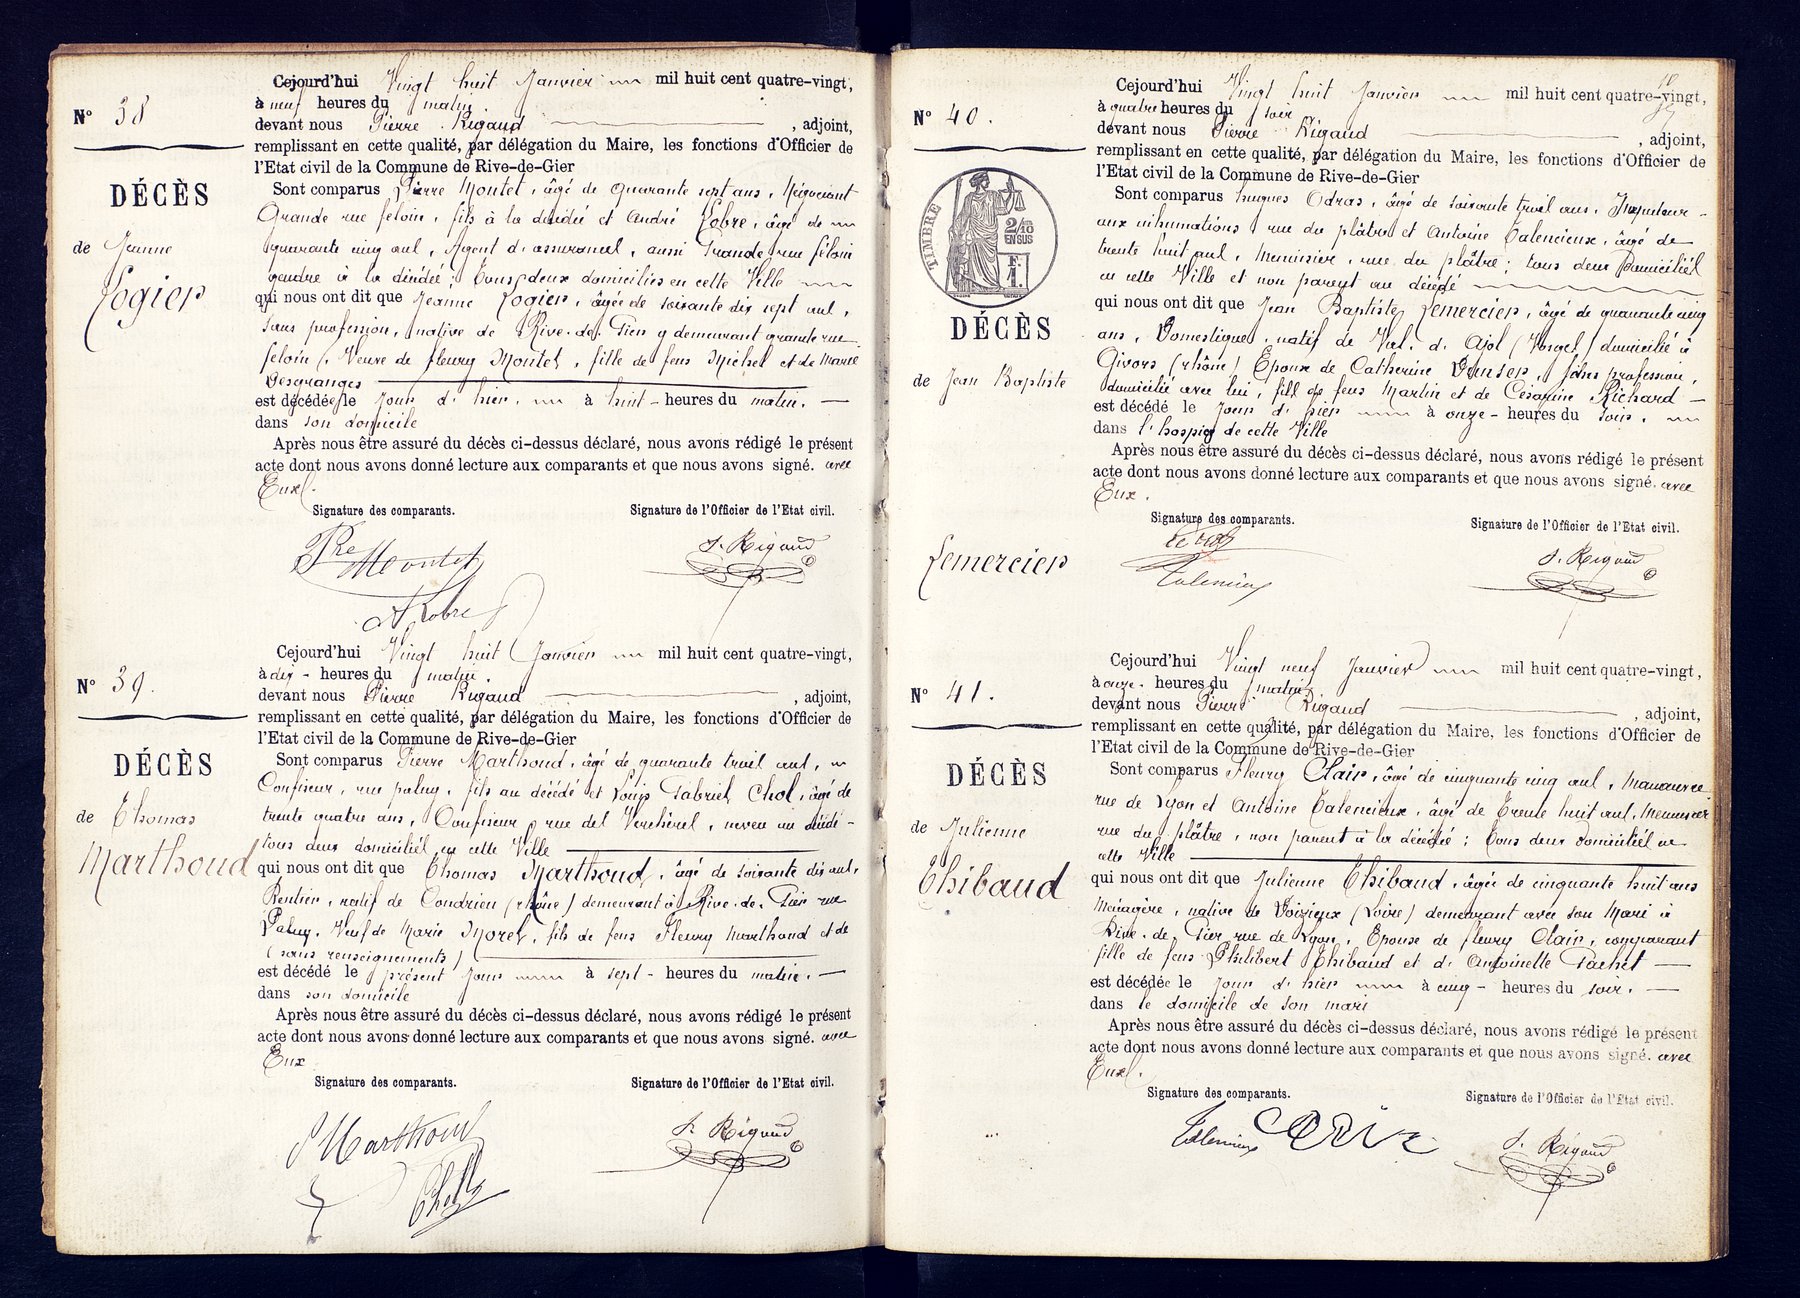 N° 38
DÉCÈS
de Jeanne
Logier
Cejourd'hui Vingt huit Janvier mil huit cent quatre-vingt,
à neuf heures du matin.
devant nous Pierre Rigaud , adjoint,
remplissant en cette qualité, par délégation du Maire, les fonctions d'Officier de
l'Etat civil de la Commune de Rive-de-Gier
Sont comparus Pierre Montet, âgé de quarante sept ans, Négociant
Grande rue feloin, fils à la décédée et André Lobre, âgé de
quarante cinq ans, Agent d'assurances, aussi Grande rue feloin
gendre à la décédée; Tous deux domiciliés en cette Ville
qui nous ont dit que Jeanne Logier, âgée de soixante dix sept ans,
sans profession, native de Rive-de-Gier y demeurant grande rue
feloin, Veuve de fleury Montet, fille de feus Michel et de Marie
Desgranges
est décédée le jour d'hier, à huit - heures du matin.
dans son domicile
Après nous être assuré du décès ci-dessus déclaré, nous avons rédigé le présent
acte dont nous avons donné lecture aux comparants et que nous avons signé. avec
Eux.
Signature des comparants. Signature de l'Officier de l'Etat civil.
Pre Montet
P. Rigaud
A Lobre
N° 39.
DÉCÈS
de Thomas
Marthoud
Cejourd'hui Vingt huit Janvier mil huit cent quatre-vingt,
à dix - heures du matin.
devant nous Pierre Rigaud , adjoint,
remplissant en cette qualité, par délégation du Maire, les fonctions d'Officier de
l'Etat civil de la Commune de Rive-de-Gier
Sont comparus Pierre Marthoud, âgé de quarante trois ans,
Confiseur, rue paluy, fils au décédé et Louis Gabriel Chol, âgé de
trente quatre ans, Confiseur, rue des Verchères, neveu au décédé -
tous deux domiciliés en cette Ville
qui nous ont dit que Thomas Marthoud, âgé de soixante dix ans,
Rentier, natif de Condrieu (rhône) demeurant à Rive-de-Gier rue
Paluy, Veuf de Marie Morel, fils de feus Fleury Marthoud et de
(sans renseignements)
est décédé le présent jour à sept - heures du matin.
dans son domicile
Après nous être assuré du décès ci-dessus déclaré, nous avons rédigé le présent
acte dont nous avons donné lecture aux comparants et que nous avons signé. avec
Eux
Signature des comparants. Signature de l'Officier de l'Etat civil.
P Marthoud
P. Rigaud
Chol
N° 40.
TIMBRE
2/10
EN SUS
F.
1.
DÉCÈS
de Jean Baptiste
Lemercier
Cejourd'hui Vingt huit Janvier mil huit cent quatre-vingt,
à quatre heures du soir
devant nous Pierre Rigaud , adjoint,
remplissant en cette qualité, par délégation du Maire, les fonctions d'Officier de
l'Etat civil de la Commune de Rive-de-Gier
Sont comparus hugues Odras, âgé de soixante trois ans, Inspecteur -
aux inhumations rue du plâtre et Antoine Talencieux, âgé de
trente huit ans, Menuisier, rue du plâtre; tous deux Domiciliés
en cette Ville et non parent au décédé
qui nous ont dit que Jean Baptiste Lemercier, âgé de quarante cinq
ans, Domestique, natif de Val-d'Ajol (Vosges) domicilié à
Givors (rhône) Epoux de Catherine , sans profession,
domiciliée avec lui, fils de feus Martin et de Césarine Richard
est décédé le jour d'hier à onze - heures du soir.
dans l'hospice de cette Ville
Après nous être assuré du décès ci-dessus déclaré, nous avons rédigé le présent
acte dont nous avons donné lecture aux comparants et que nous avons signé. avec
Eux.
Signature des comparants. Signature de l'Officier de l'Etat civil.
P. Rigaud
Talencieux
N° 41.
DÉCÈS
de Julienne
Thibaud
Cejourd'hui Vingt neuf Janvier mil huit cent quatre-vingt,
à onze - heures du matin
devant nous Pierre Rigaud , adjoint,
remplissant en cette qualité, par délégation du Maire, les fonctions d'Officier de
l'Etat civil de la Commune de Rive-de-Gier
Sont comparus Fleury Clair, âgé de cinquante cinq ans, Manœuvre
rue de Lyon et Antoine Talencieux, âgé de Trente huit ans, Menuisier
rue du plâtre, non parent à la décédée; Tous deux Domiciliés en
cette Ville
qui nous ont dit que Julienne Thibaud, âgée de cinquante huit ans
Ménagère, native de Doizieux (Loire) demeurant avec son Mari à
Rive-de-Gier rue de Lyon, Epouse de fleury Clair, comparant
fille de feus Philibert Thibaud et d'Antoinette Pachet
est décédée le jour d'hier à cinq - heures du soir.
dans le domicile de son mari
Après nous être assuré du décès ci-dessus déclaré, nous avons rédigé le présent
acte dont nous avons donné lecture aux comparants et que nous avons signé. avec
Eux.
Signature des comparants. Signature de l'Officier de l'Etat civil.
Talencieux
P. Rigaud